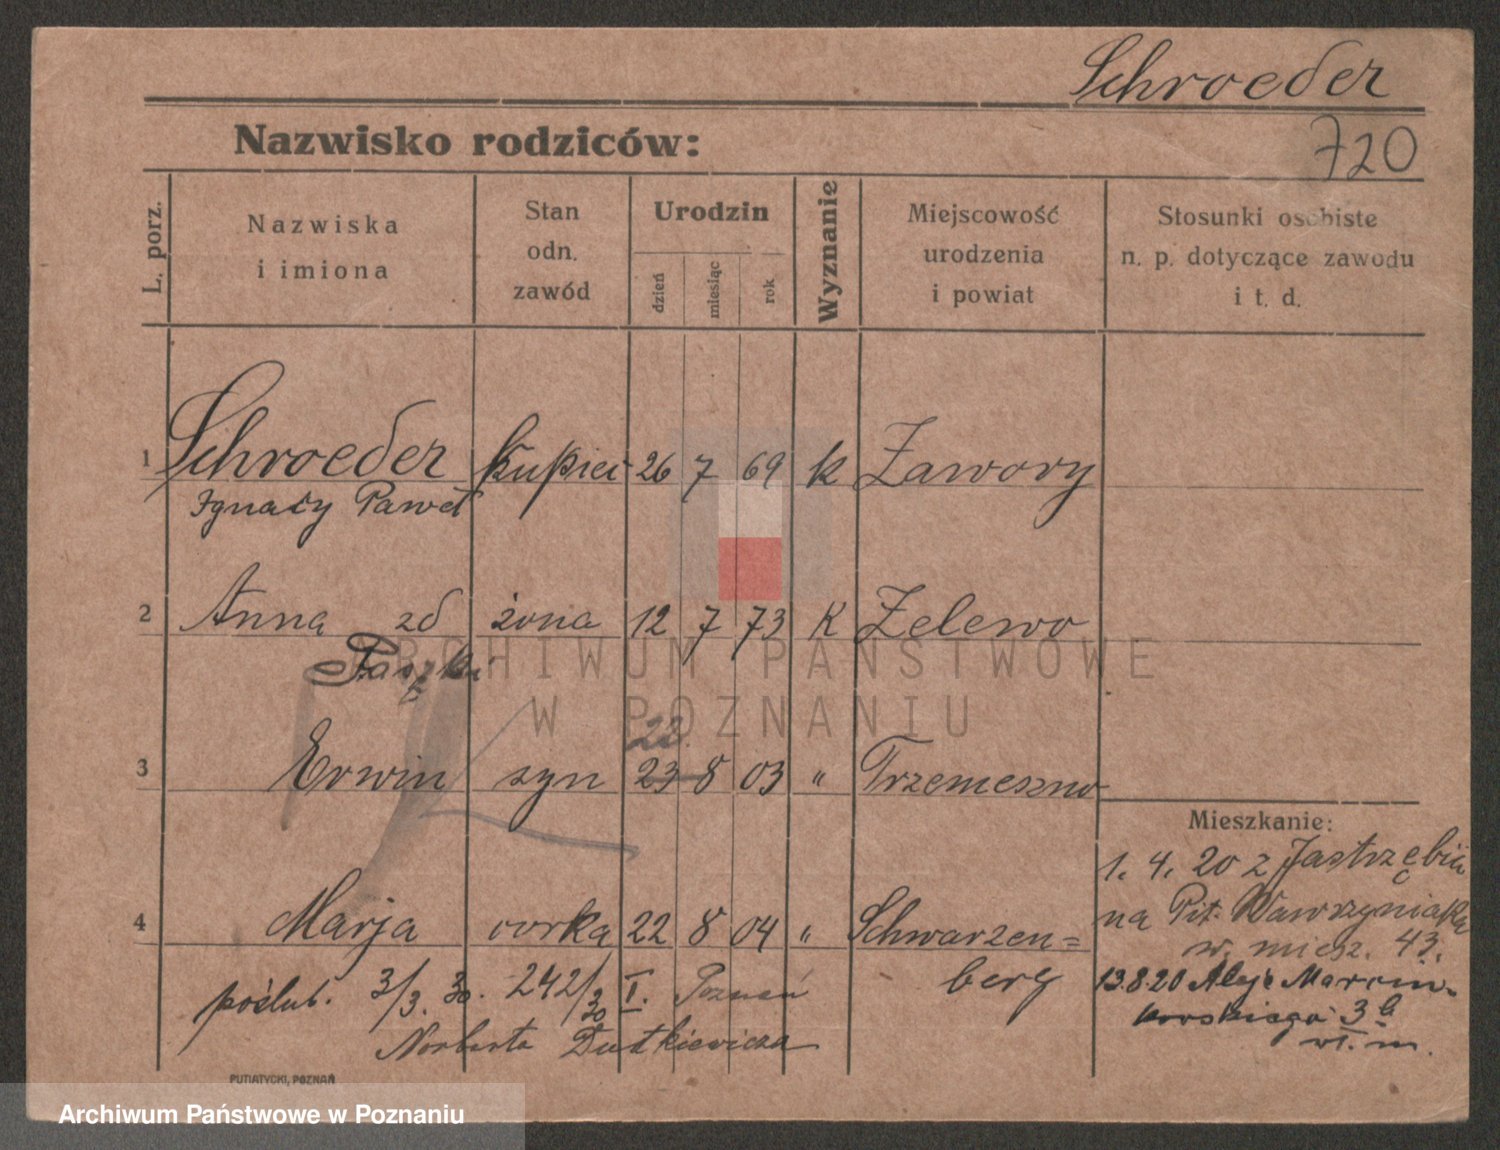 Schroeder
720
Nazwisko rodziców:
L. porz.
Nazwiska
i imiona
Stan
odn.
zawód
Urodzin
dzień
miesiąc
rok
Wyznanie
Miejscowość
urodzenia
i powiat
Stosunki osobiste
n. p. dotyczące zawodu
i t. d.
1 Schroeder kupiec 26 7 69 k Zawory
Ignacy Paweł
2 Anna zd żona 12 7 73 k Zelewo
ARCHIWUM PAŃSTWOWE
W POZNANIU
22.
3 Erwin syn 23 8 03 " Trzemeszno
4 Marja corka 22 8 04 " Schwarzen=
berg
poślub. 3/3. 30. 242/30 I. Poznań
Norberta Dutkiewicza
Mieszkanie:
1. 4. 20 z Jastrzębia
na Pit. Wawrzyniaka
w. miesz. 43.
13.8.20 Aleje Marcin-
kowskiego 3b
wł. m.
PUTIATYCKI, POZNAŃ
Archiwum Państwowe w Poznaniu